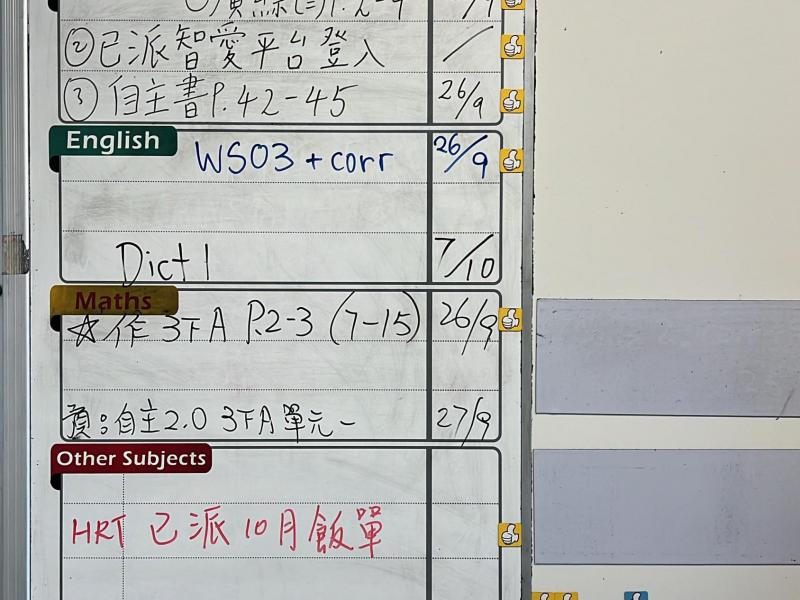 ②已派智愛平台登入 /
③自主書P.42-45 26/9
English
WS03 + corr 26/9
Dict 1 7/10
Maths
☆作 3下A P.2-3 (7-15) 26/9
預:自主2.0 3下A單元一 27/9
Other Subjects
HRT 已派10月飯單